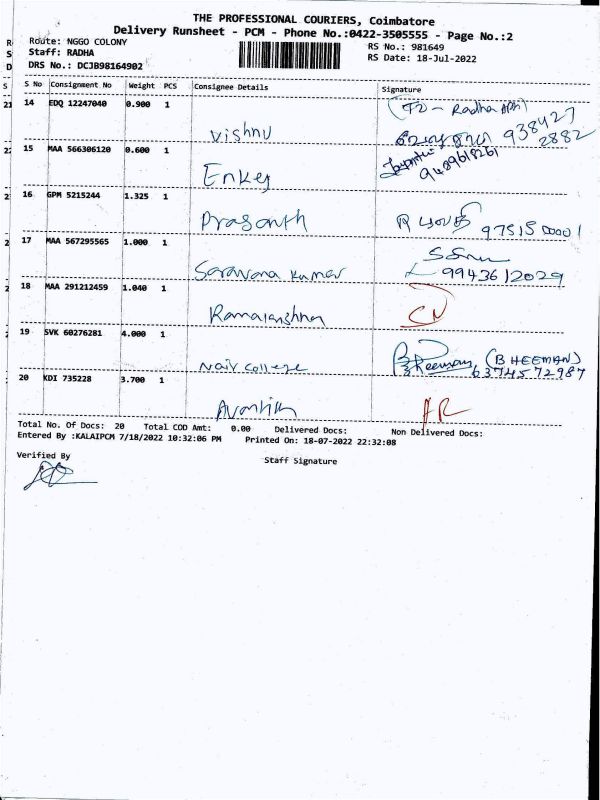 THE PROFESSIONAL COURIERS, Coimbatore
Delivery Runsheet - PCM - Phone No.:0422-3505555 - Page No.:2
Route: NGGO COLONY
RS No.: 981649
Staff: RADHA
RS Date: 18-Jul-2022
DRS No.: DCJB98164902
S No Consignment No Weight PCS Consignee Details Signature
14 EDQ 12247040 0.900 1 Vishnu
938427
2882
15 MAA 566306120 0.600 1 Enkey
9489618261
16 GPM 5215244 1.325 1 Prasanth
17 MAA 567295565 1.000 1 Saravana Kumar
9943612029
18 MAA 291212459 1.040 1
19 SVK 60276281 4.000 1 Nair College
Bheeman (BHEEMAN)
6374572987
20 KDI 735228 3.700 1
AR
Total No. Of Docs: 20 Total COD Amt: 0.00 Delivered Docs: Non Delivered Docs:
Entered By :KALAIPCM 7/18/2022 10:32:06 PM Printed On: 18-07-2022 22:32:08
Verified By
Staff Signature